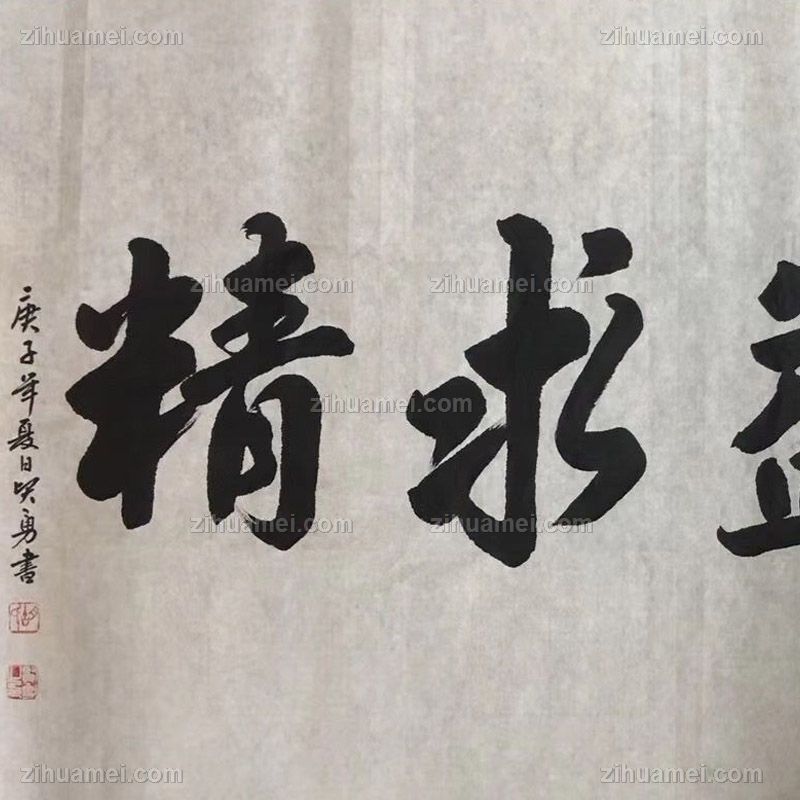 益求精
庚子年夏日
勇書
zihuamei.com
zihuamei.com
zihuamei.com
zihuamei.com
zihuamei.com
zihuamei.com
zihuamei.com
zihuamei.com
zihuamei.com
zihuamei.com